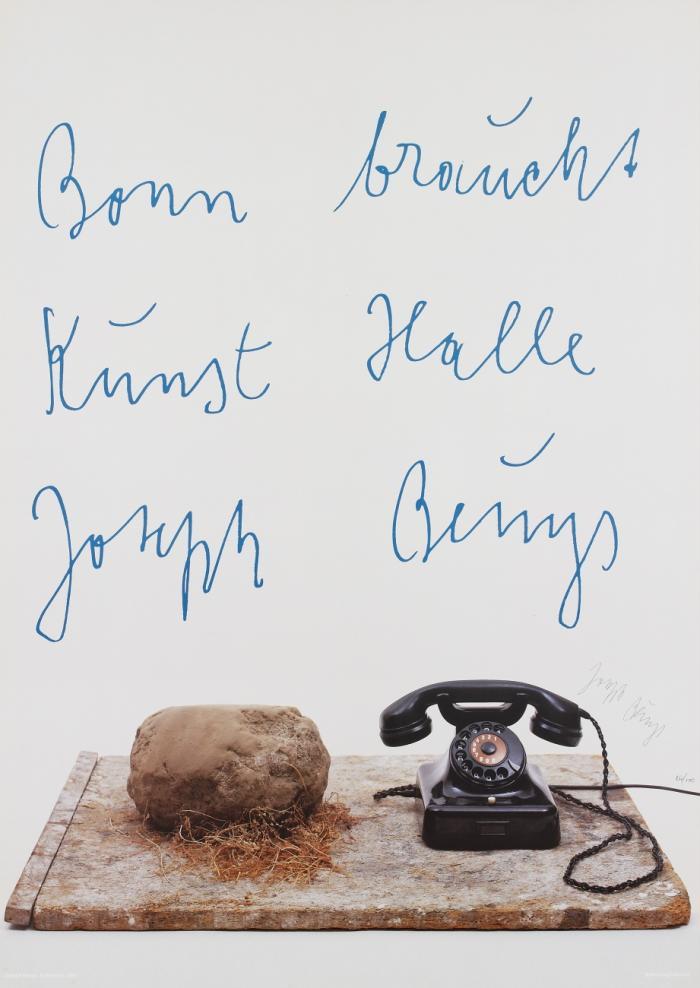 Bonn braucht
Kunst Halle
Joseph Beuys
Joseph Beuys